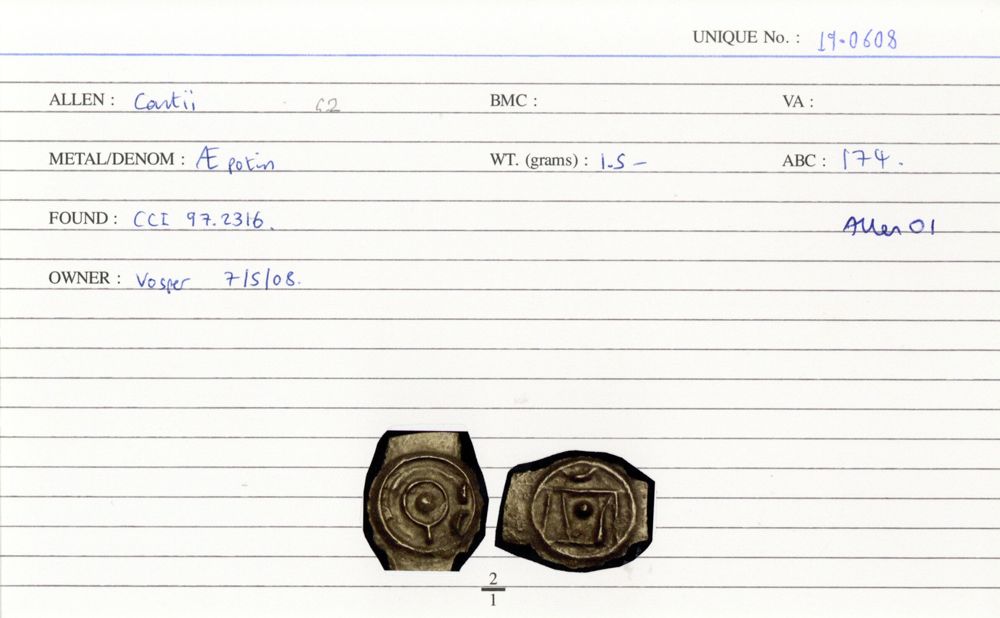 UNIQUE No. : 19.0608
ALLEN : Cantii C2 BMC : VA :
METAL/DENOM : Æ potin WT. (grams) : 1.5 – ABC : 174.
FOUND : CCI 97.2316. Allen O1
OWNER : Vosper 7/5/08.
2
1